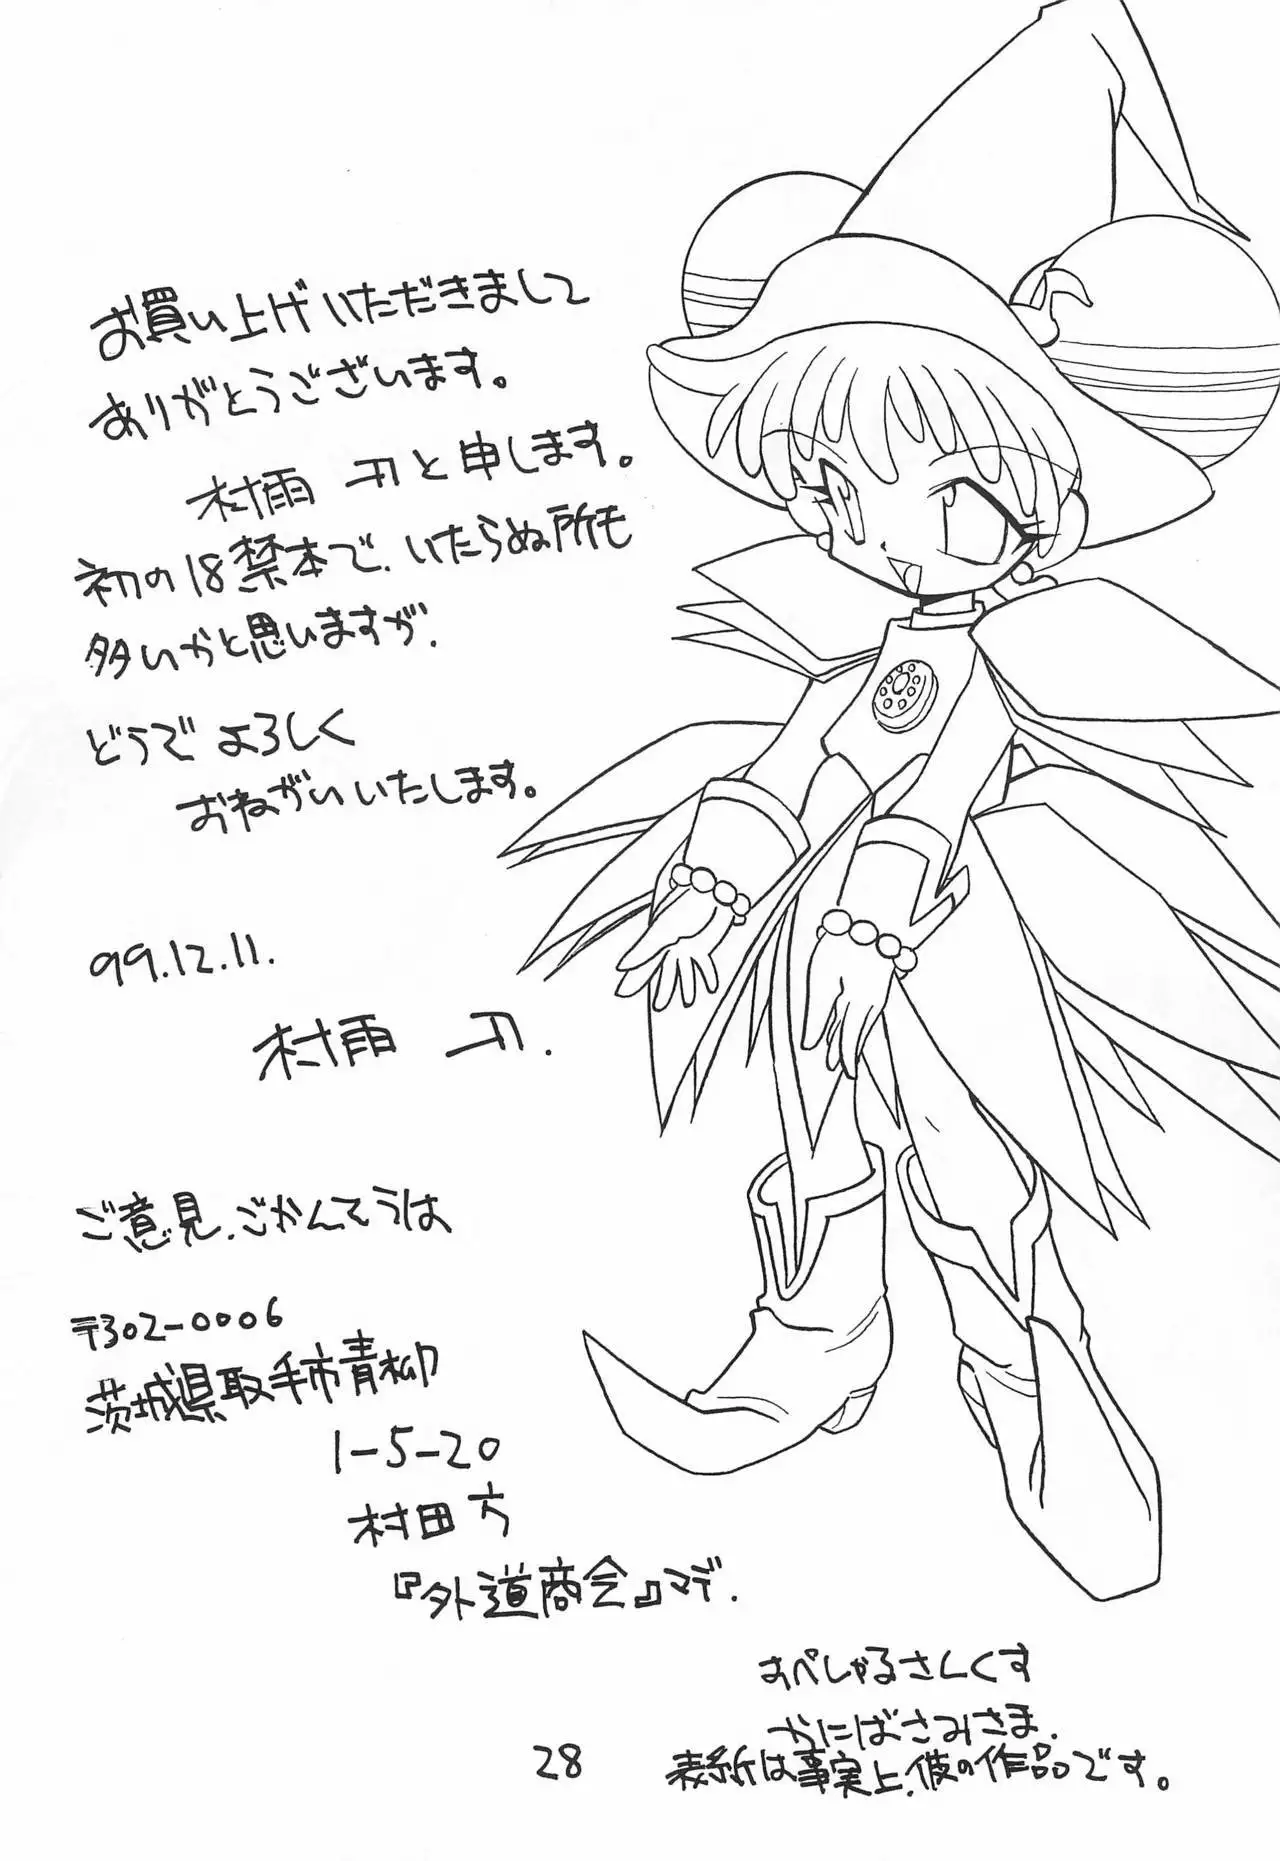 お買い上げいただきまして
ありがとうございます。
村雨 刃と申します。
初の18禁本で、いたらぬ所も
多いかと思いますが、
どうでよろしく
おねがいいたします。
99.12.11.
村雨 刃.
ご意見、ごかんそうは
〒302-0006
茨城県取手市青柳
1-5-20
村田方
『外道商会』マデ.
すぺしゃるさんくす
かにばさみさま.
表紙は事実上、彼の作品です。
28